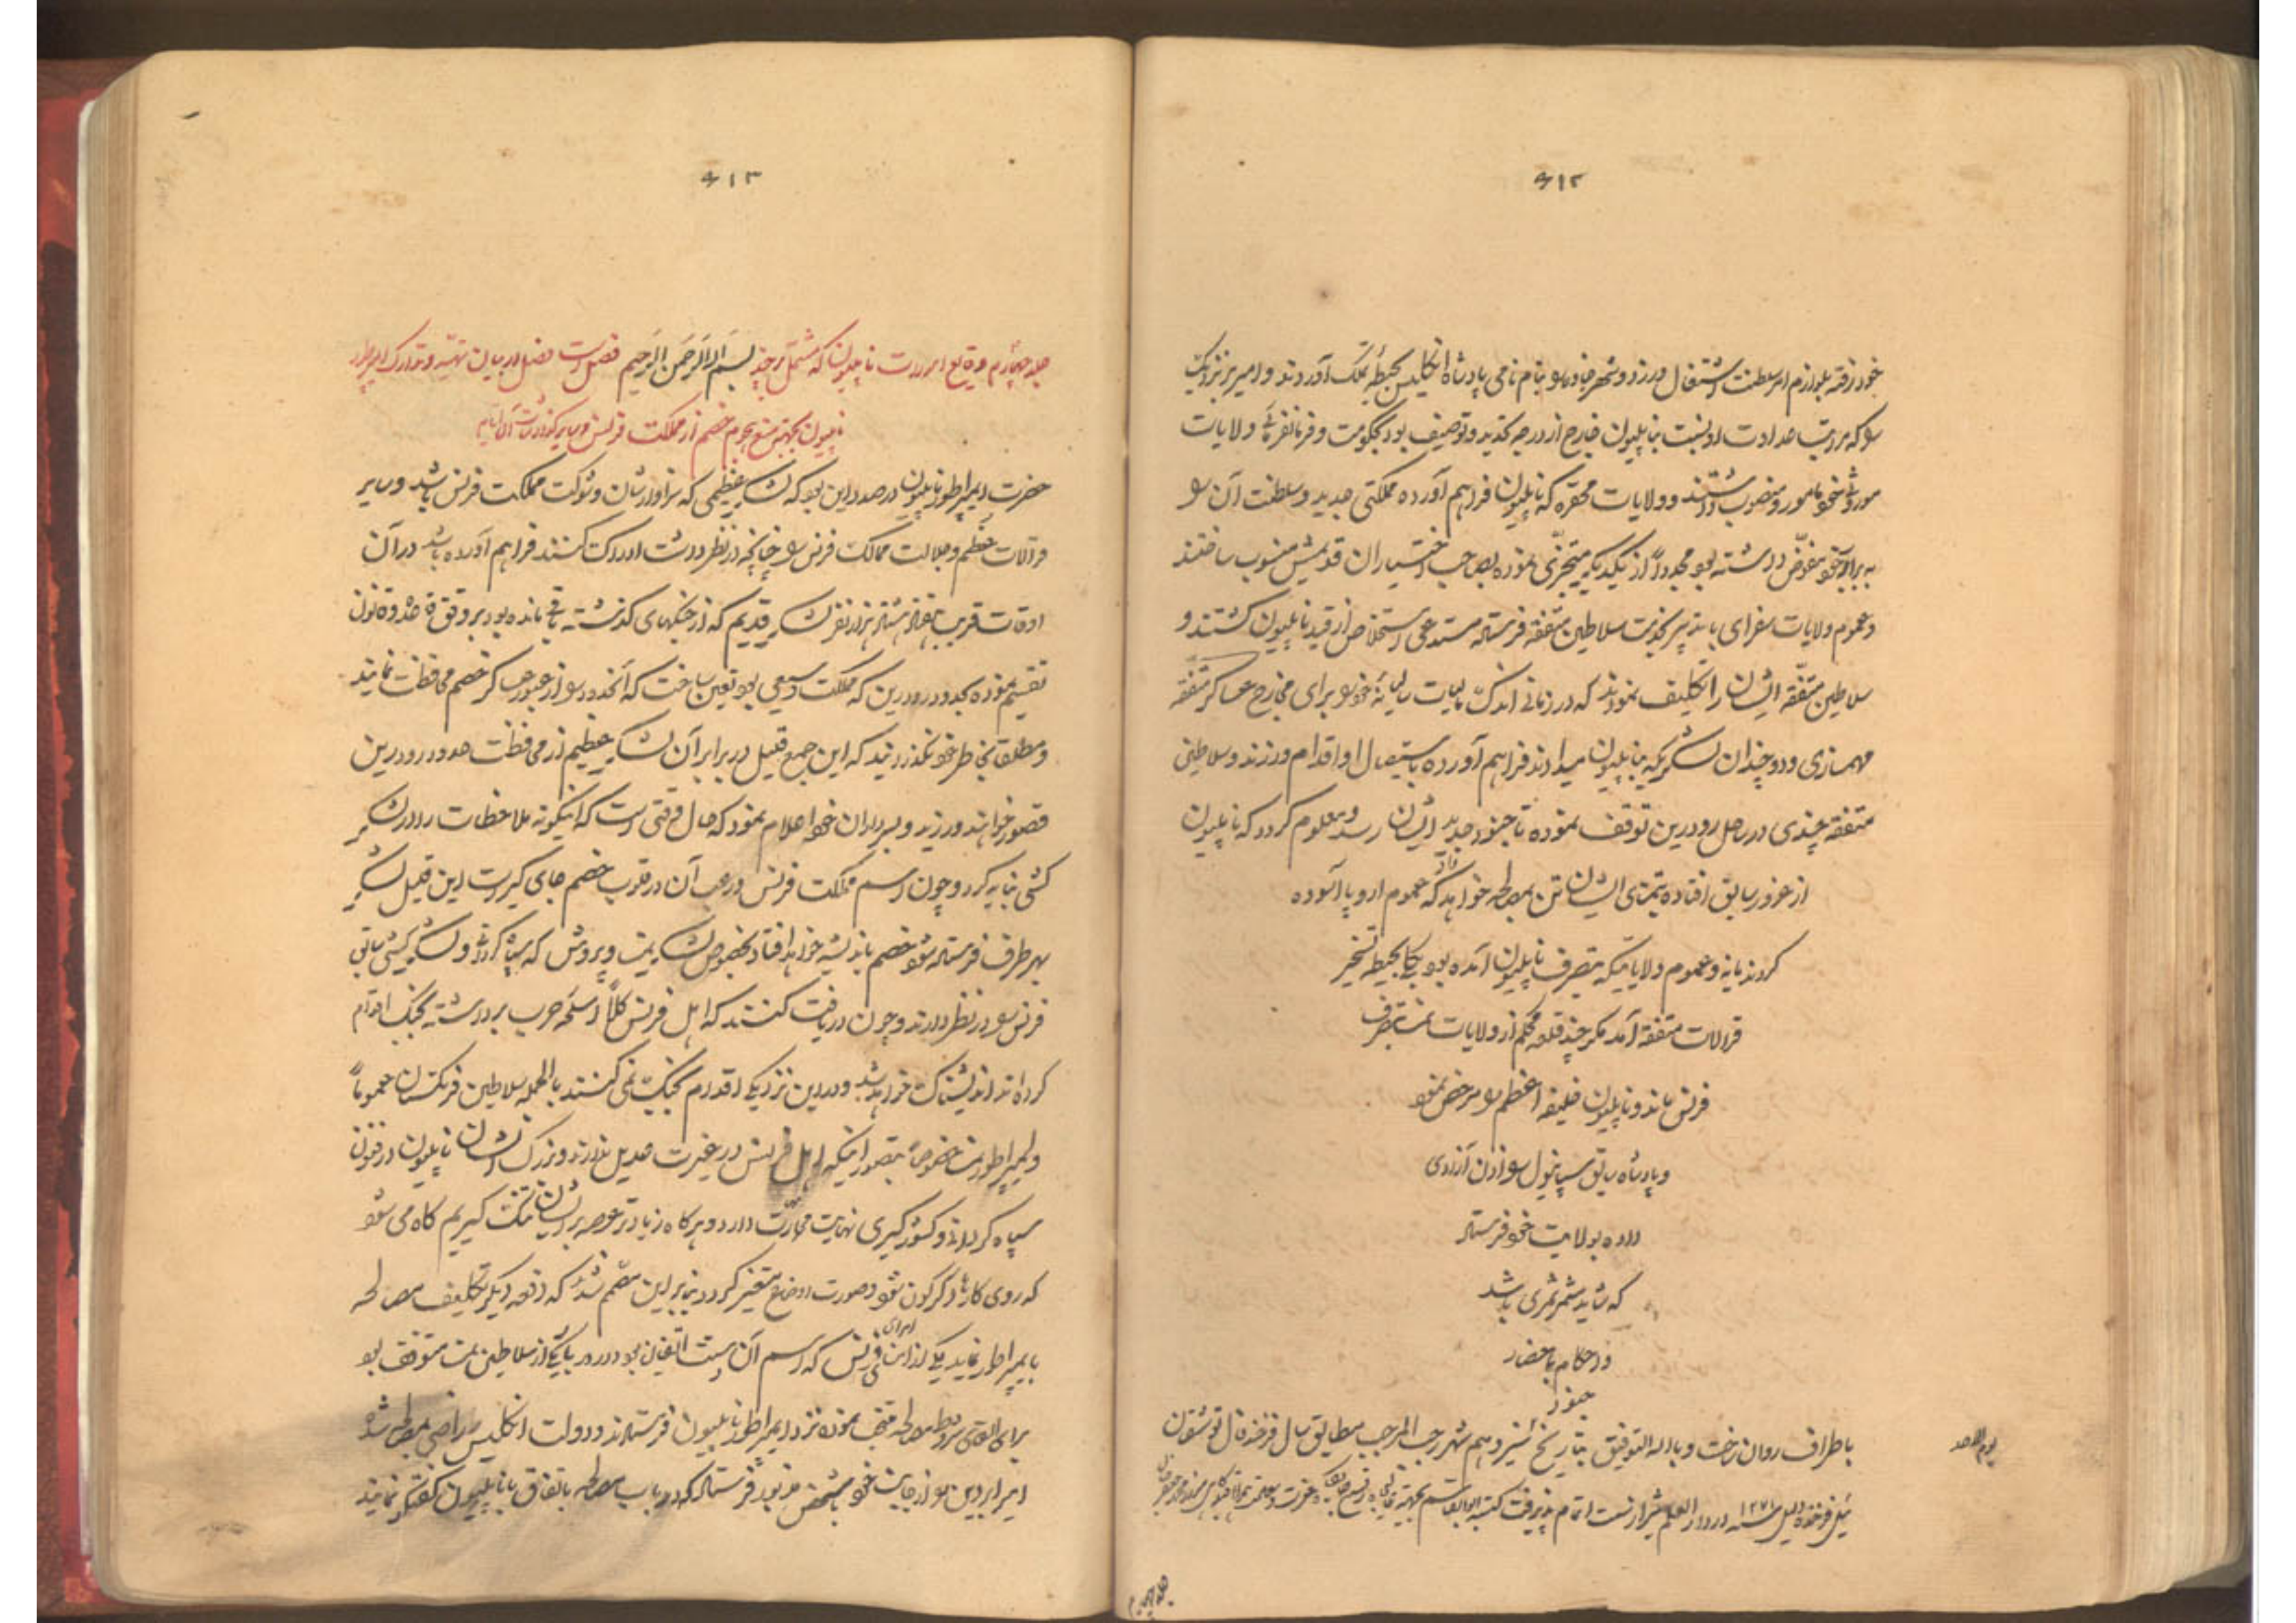 ۶۱۲
خود رفته بلوازم امر سلطنت اشتغال ورزد و شهر هانور را بنام نامی پادشاه انگلیس بحیطه تملک آوردند و امیر
را که مراتب عداوت او نسبت بناپلیون خارج از درجه تحدید و توصیف بود بحکومت و فرمانفرمائی ولایات
موروثی خود مامور و منصوب داشتند و ولایات محقره که ناپلیون فراهم آورده مملکتی جدید و سلطنت آن را
به برادر خود مفوض داشته بود مجدداً از یکدیگر متجزی نموده بصاحب اختیاران قدیمش منسوب ساختند
و عموم ولایات سفرای با تدبیر بخدمت سلاطین متفقه فرستاده مستدعی استخلاص از قید ناپلیون گشتند و
سلاطین متفقه ایشان را تکلیف نمودند که در زمانی اندک مالیات سالیانه خود را برای مخارج عساکر متفقه
مهمسازی و دو چندان لشکریکه بناپلیون میدادند فراهم آورده باستیصال او اقدام ورزند و سلاطین
متفقه چندی در ساحل رود رین توقف نموده تا جنود جدید ایشان رسد و معلوم گردد که ناپلیون
از غرور سابق افتاده بتمنای ایشان تن بمصالحه خواهد داد که عموم اروپا آسوده
گردند یا نه و عموم ولایاتیکه بتصرف ناپلیون آمده بود یکجا بحیطه تسخیر
قرالات متفقه آمد مگر چند قلعه محکم از ولایات نمسه بتصرف
فرنس ماند و ناپلیون خلیفه اعظم را مرخص نمود
و پادشاه سابق سپانیول را اذن آزادی
داده بولایت خود فرستاد
که شاید مثمر ثمری باشد
و احکام باحضار
جنود
باطراف روان ساخت و بالله التوفیق بتاریخ سیزدهم شهر رجب المرجب مطابق سال فرخنده فال توشقان
ئیل فرخنده دلیل سنه ۱۲۷۱ در دار العلم شیراز سمت اتمام پذیرفت کتبه ابوالقاسم
یوم الاحد
جلد چهارم
۶۱۳
جلد چهارم وقایع امورات ناپلیون که مشتمل بر چند بسم الله الرحمن الرحیم فصل است فصل اول در بیان تهیه و تدارک امپراطور
ناپلیون بجهة منع هجوم خصم از مملکت فرنس و سایر گذارشات آن ایام
حضرت ایمپراطور ناپلیون در صدد این بود که لشکر عظیمی که سزاوار شان و شوکت مملکت فرنس باشد و سایر
قرالات عظم و جلالت ممالک فرنس را چنانچه در نظر داشت ادراک کنند فراهم آورده باشد در آن
اوقات قریب بهفتاد هشتاد هزار نفر لشکر قدیم که از جنگهای گذشته باقی مانده بود بر وفق قاعده و قانون
تقسیم نموده بحدود رود رین که مملکت وسیعی بود تعین ساخت که آنحدود را از عبور عساکر خصم محافظت نمایند
و مطلقا بخاطر خود نگذرانید که این جمع قلیل در برابر آن لشکر عظیم از محافظت حدود رود رین
قصور خواهند ورزید و بسرداران خود اعلام نمود که حال وقتی است که اینگونه ملاحظات را در لشکر
کشی نباید کرد و چون اسم مملکت فرنس و رعب آن در قلوب خصم جای گیر است این قلیل لشکر
بهر طرف فرستاده شود خصم باندیشه خواهد افتاد بخصوص لشکر نمسه و پروش که سپاه گردانی و لشکر کشی سابق
فرنس را در نظر دارند و چون دریافت کنند که اهل فرنس کلاً اسلحه حرب برداشته بجنگ اقدام
کرده اند اندیشناک خواهند شد و در این نزدیکی اقدام بجنگ نمی کنند بالجمله سلاطین فرنگستان عموماً
و ایمپراطور نمسه خصوصاً بتصور اینکه اهل فرنس در غیرت عدیل ندارند و بزرگ ایشان ناپلیون در فنون
سپاه گردانی و کشور گیری نهایت مهارت دارد و هرگاه زیادتر عرصه بر ایشان تنگ گیریم گاه می شود
که روی کارها دگرگون شود و صورت اوضاع متغیر گردد بنابراین مصمم شدند که دفعه دیگر تکلیف مصالحه
بایمپراطور نمایند یکی از امرای فرنس که اسم آن سنت القنان بود و در نزد یکی از سلاطین نمسه متوقف بود
برای القای شروط مصالحه منتخب نموده نزد ایمپراطور ناپلیون فرستادند و دولت انگلیس راضی بمصالحه شد
امیر ابردین را از جانب خود بشخص مزبور فرستاد که در باب مصالحه باتفاق با ناپلیون گفتگو نمایند